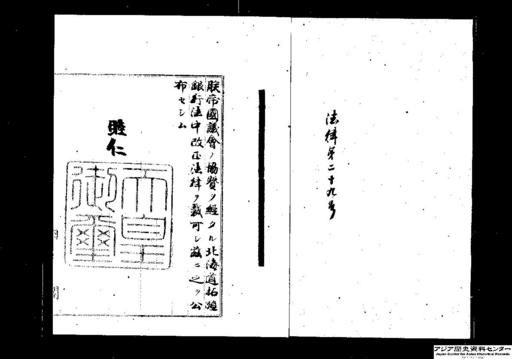 法律第二十九号
朕帝國議會ノ協賛ヲ經タル北海道拓殖
銀行法中改正法律ヲ裁可シ茲ニ之ヲ公
布セシム
睦仁
天皇
御璽
アジア歴史資料センター
Japan Center for Asian Historical Records